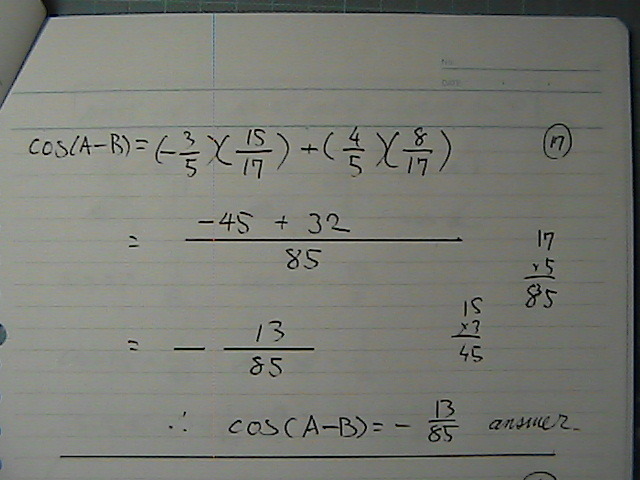 No.
DATE
cos(A-B)=(-3/5)(15/17)+(4/5)(8/17) ⑰
= (-45 + 32)/85
17
×5
85
= - 13/85
15
×3
45
∴ cos(A-B)= - 13/85 answer.